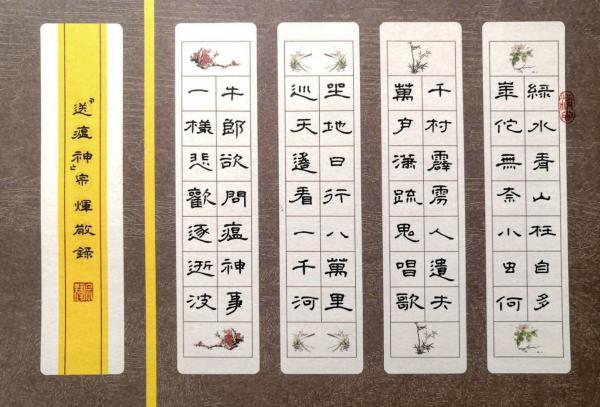 綠水青山枉自多
華佗無奈小虫何
千村霹雳人遺失
萬户瀟疏鬼唱歌
坐地日行八萬里
巡天遙看一千河
牛郎欲問瘟神事
一樣悲歡逐逝波
「送瘟神」宗煇敬錄